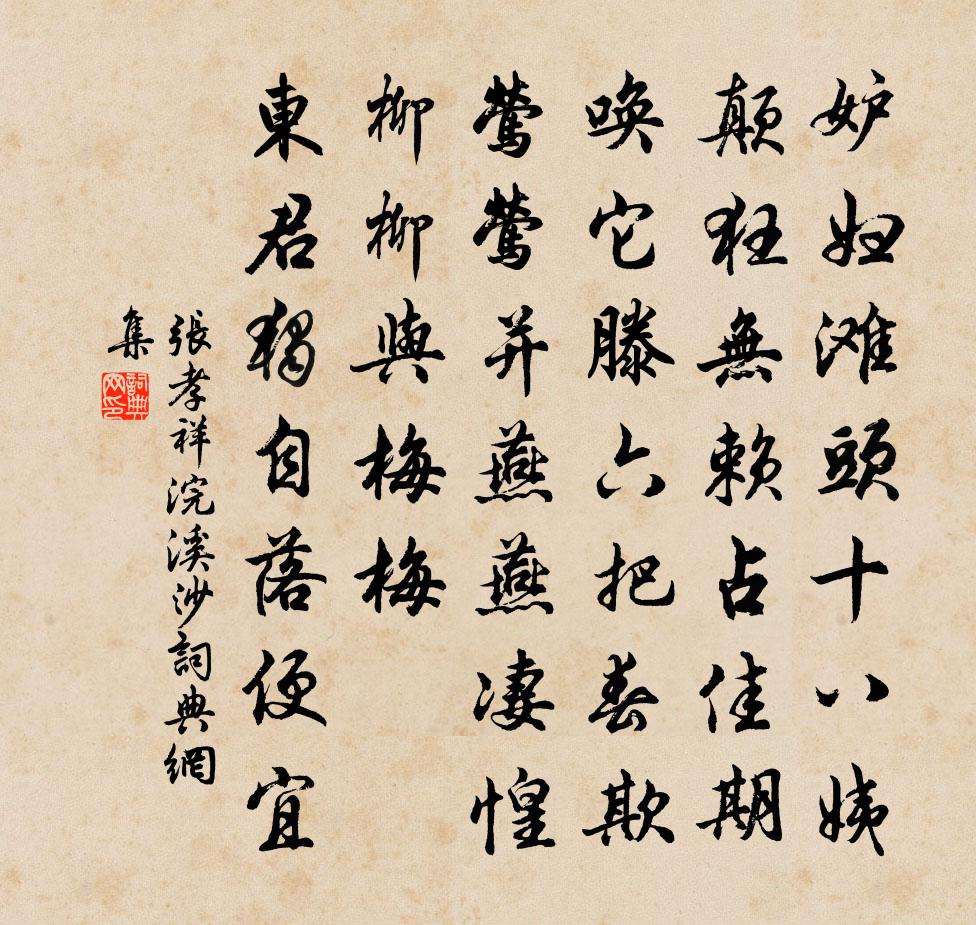 妒妇滩頭十八姨
顛狂無賴占佳期
唤它滕六把春欺
鶯鶯并燕燕凄惶
柳柳與梅梅
東君獨自落便宜
張孝祥浣溪沙詞典網
集
詞典网印